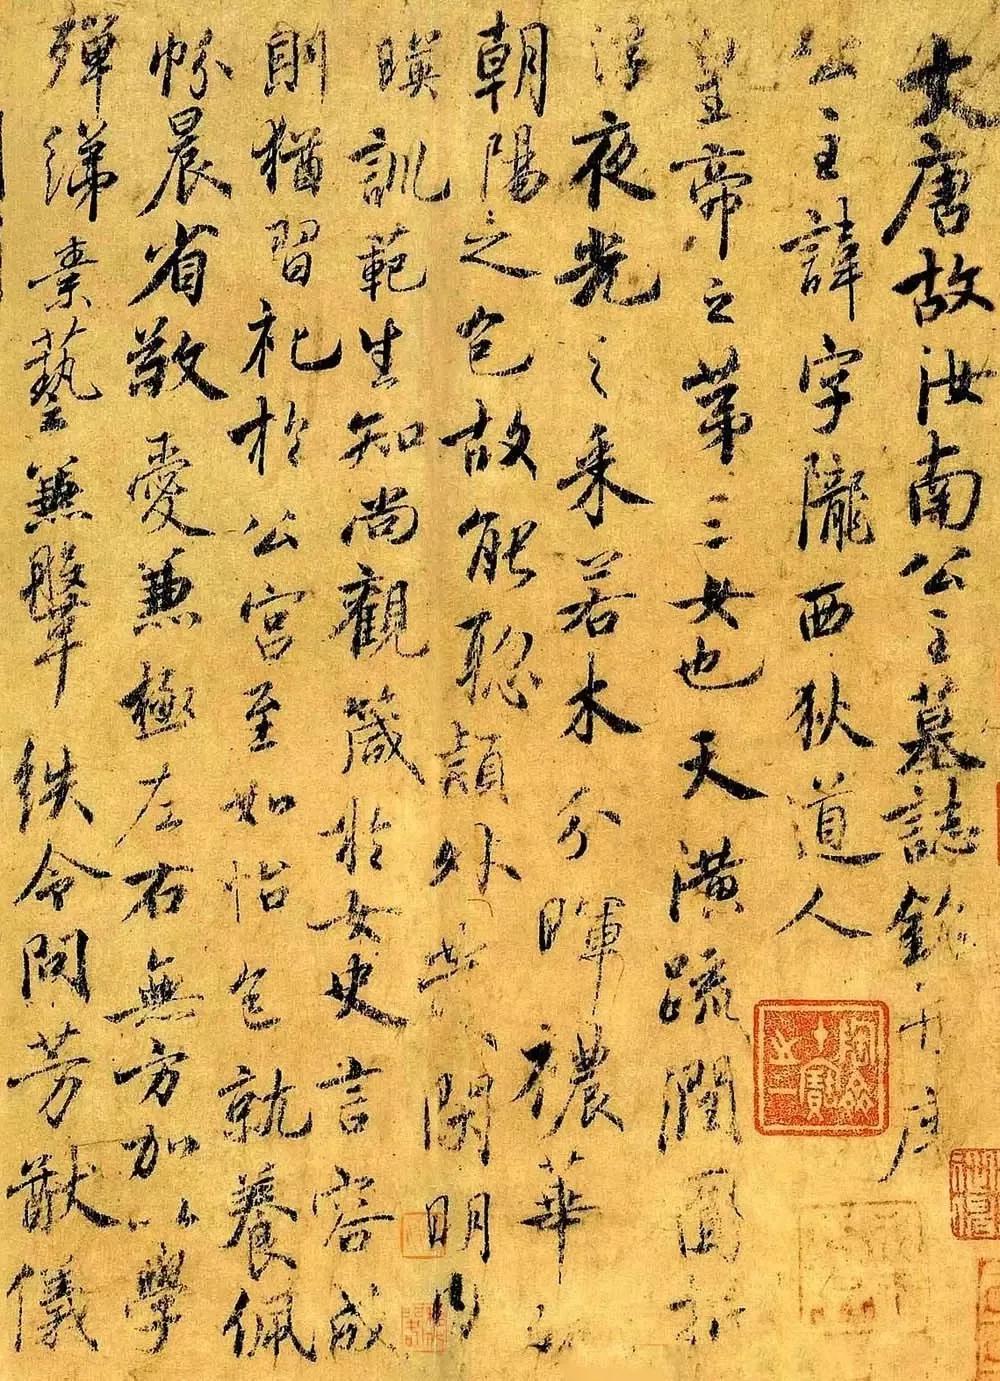 大唐故汝南公主墓誌銘并序
公主諱字隴西狄道人
皇帝之第三女也天潢疏潤圓折
浮夜光之采若木分暉穠華照
朝陽之色故能聰穎外發閑明內
暎訓範生知尚觀箴於女史言容成
則猶習礼於公宮至如怡色就養佩
帉晨省敬愛兼極左右無方加以學
殫綈素藝兼鞶紩令問芳猷儀